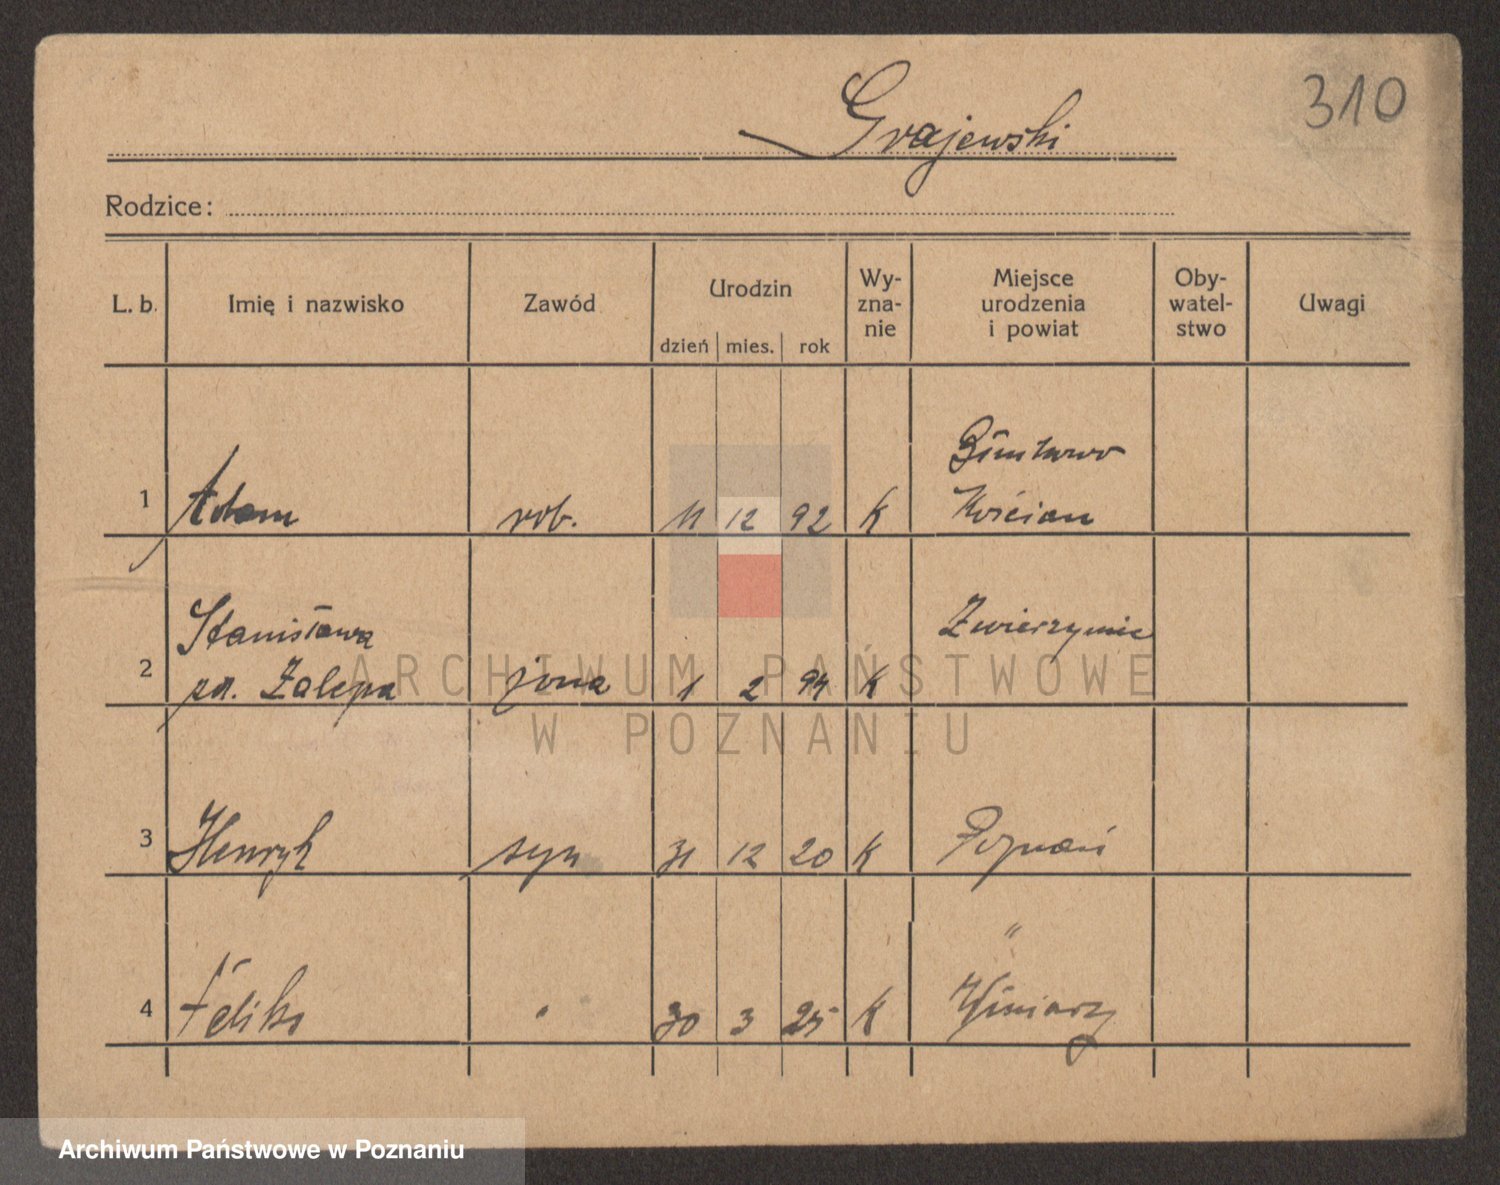 310
Grajewski
Rodzice:
L. b. Imię i nazwisko Zawód Urodzin dzień mies. rok Wy-zna-nie Miejsce urodzenia i powiat Oby-watel-stwo Uwagi
1 Adam rob. 11 12 92 K Kościan
Stanisława Zwierzyniec
2 Zalepa żona 1 2 94 K
3 Henryk syn 31 12 20 K Poznań
"
4 Feliks " 30 3 25 K Winiary
ARCHIWUM PAŃSTWOWE
W POZNANIU
Archiwum Państwowe w Poznaniu